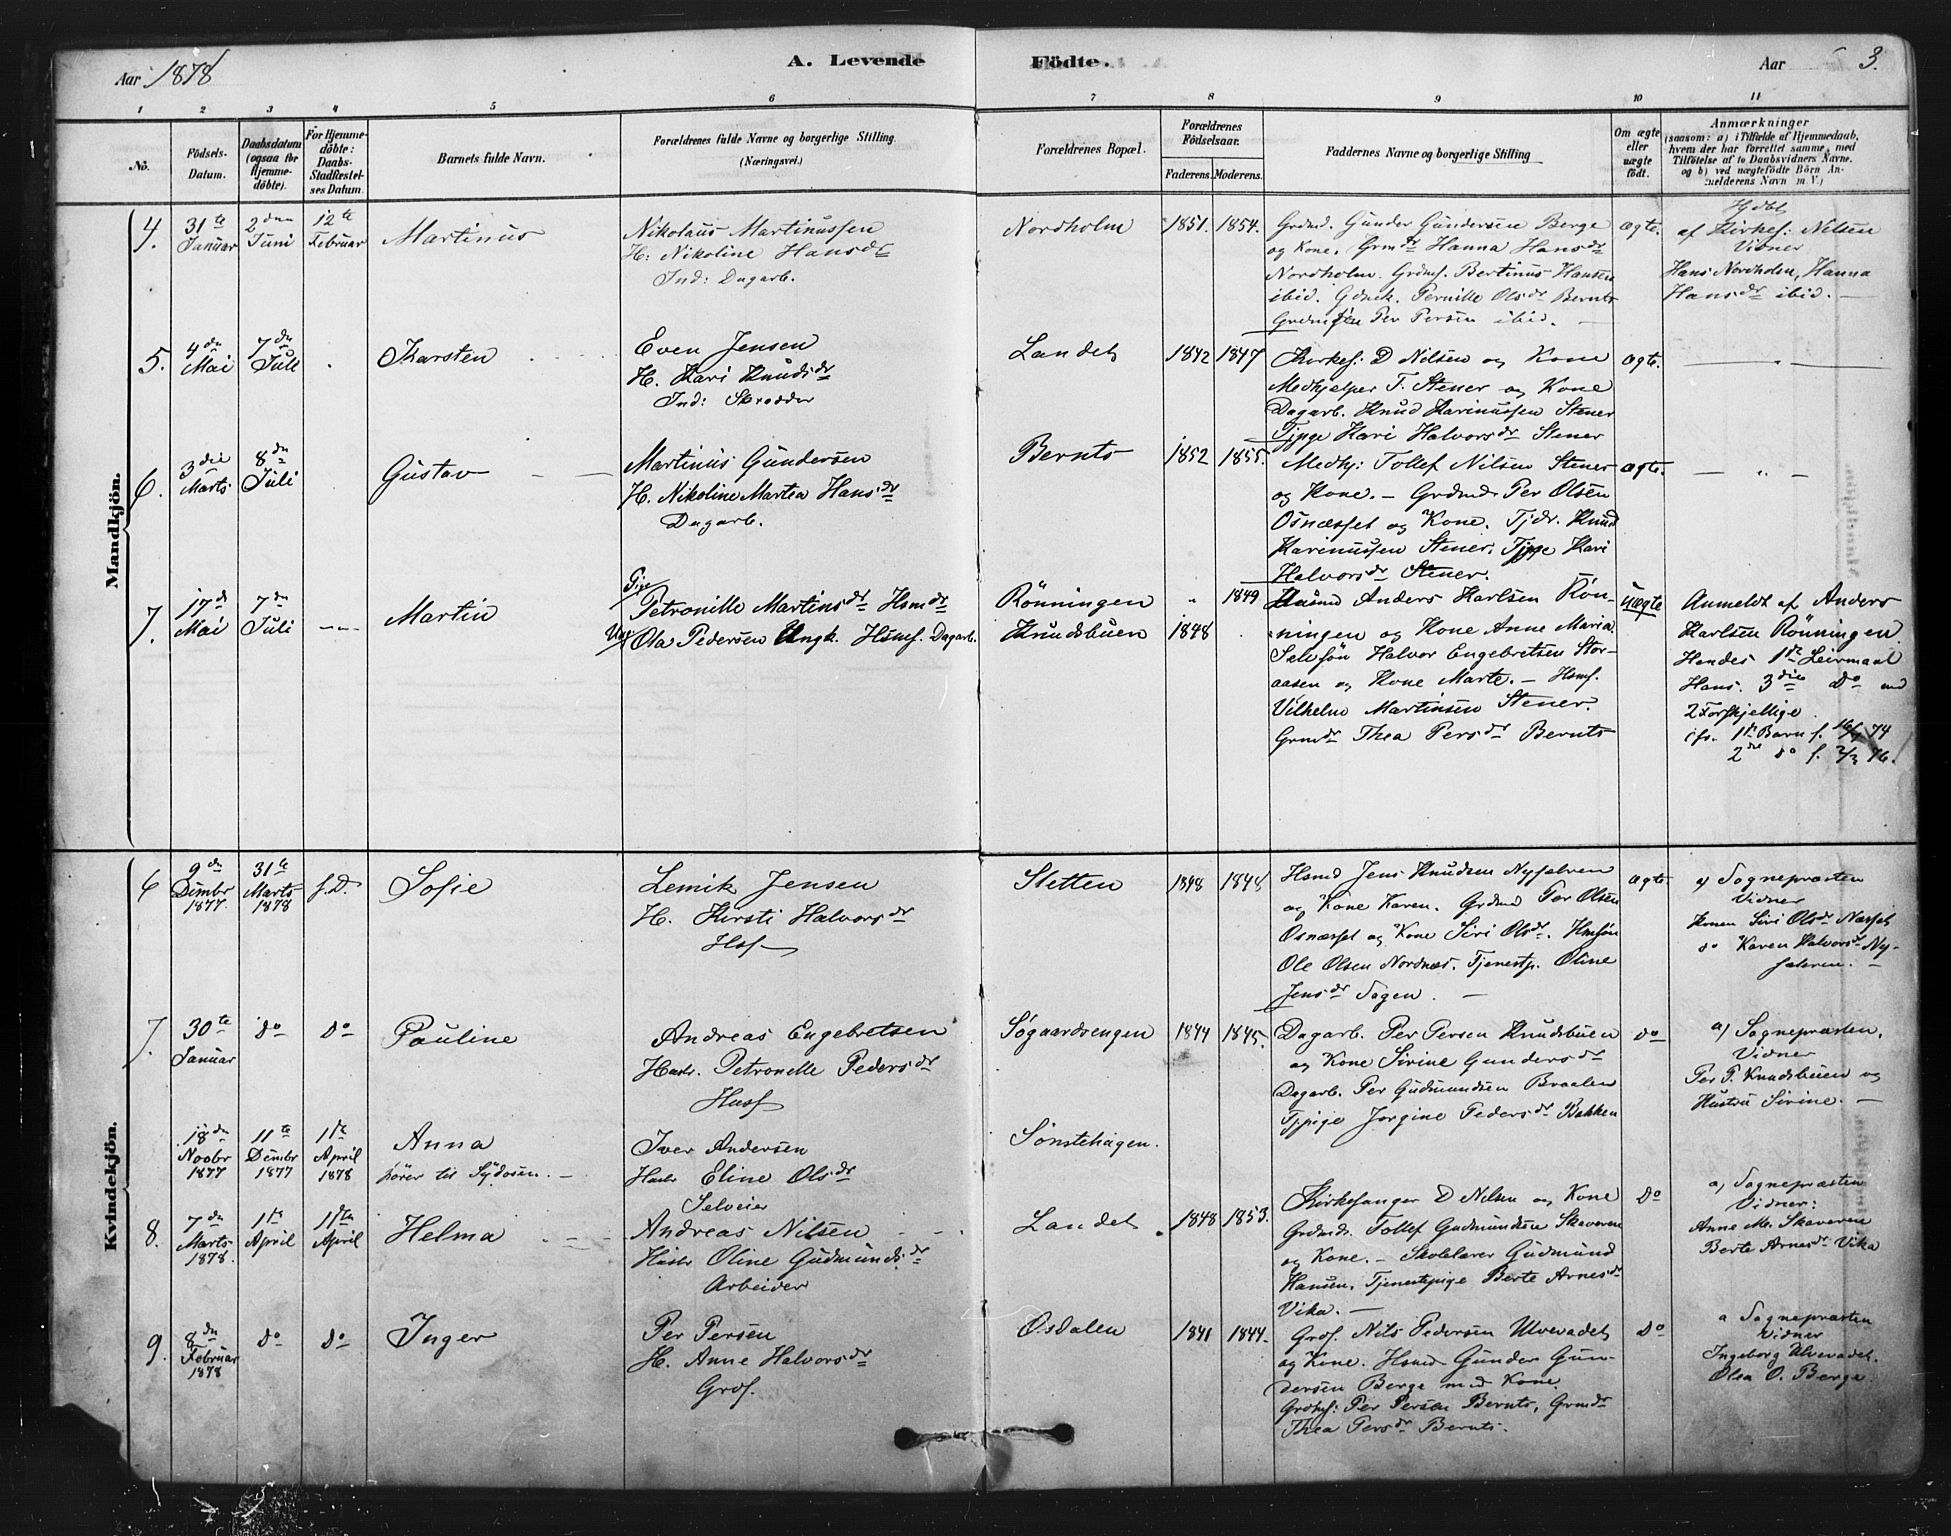 Aar 1878
A. Levende
Födte.
Aar
3.
1 2 3 4 5 6 7 8 9 10 11
No.
Födsels-
Datum.
Daabsdatum
(ogsaa for
Hjemme-
döbte).
For Hjemme-
döbte:
Daabs-
Stadfæstel-
ses Datum.
Barnets fulde Navn.
Forældrenes fulde Navne og borgerlige Stilling.
(Næringsvei.)
Forældrenes Bopæl.
Forældrenes
Födselsaar.
Faderens. Moderens.
Faddernes Navne og borgerlige Stilling
Om ægte
eller
uægte
födt.
Anmærkninger
(saasom: a) i Tilfælde af Hjemmedaab,
hvem der har forrettet samme, med
Tilföielse af to Daabsvidners Navne.
og b) ved uægtefödte Börn An-
melderens Navn m. V.)
Mandkjön.
4.
31te
Januar
2den
Juni
12te
Februar
Martinus
Nikolaus Martinussen
H: Nikoline Hansdr
Ind: Dagarb.
Nordholm
1851. 1854.
Grdmd. Gunder Gundersen Berge
og Kone. Grmdr Hanna Hansdr
Nordholm. Grdms. Bertinus Hansen
ibid. Gdmk. Pernille Olsdr Bernts
Per Persen ibid.
ægte.
Hjdbt
af Kirkes: Nilsen
Vidner
Hans Nordholm, Hanna
Hansdr ibid. —
5.
4de
Mai
7de
Juli
Karsten
Even Jensen
H. Kari Knudsdr
Ind: Skrædder
Landet
1842 1847
Kirkes: D Nilsen og Kone
Medhjelper T. Stener og Kone
Dagarb. Knud Karinussen Stener
Tjpge Kari Halvorsdr Stener
ægte.
6.
3die
Marts
8de
Juli
Gustav
Martinus Gundersen
H. Nikoline Martea Hansdr
Dagarb.
Bernts
1852 1855.
Medhj: Tollef Nilsen Stener
og Kone. — Grdmd Per Olsen
Osnæsset og Kone. Tjdr. Knud
Karinussen Stener. Tjpge Kari
Halvorsdr Stener.
ægte.
— " —
7.
17de
Mai
7de
Juli
Martin
Pige
Petronille Martinsdr Hsmdr
Ung
Ola Pedersen Ungk. Hsms. Dagarb.
Rönningen
Knudsbuen
" 1849
1848
Husmd Anders Karlsen Rön-
ningen og Kone Anne Maria.
Selvsön Halvor Engebretsen Stor-
aasen og Kone Marte. — Hsms.
Vilhelm Martinsen Stener.
Grmdr Thea Persdr Bernts
uægte
Anmeldt af Anders
Karlsen Rönningen.
Hendes 1ste Leiermaal
Hans. 3die do med
2 Forskjellige.
1ste Barn f. 74
2det do f. 2/3 76.
Kvindekjön.
6
9de
Dembr
1877.
31te
Marts
1878
s.D.
Sofie
Lemik Jensen
H. Kirsti Halvorsdr
Hsf
Stetten
1848 1848
Hsmd Jens Knudsen Nysæteren
og Kone Karen. Grdmd Tor Olsen
Osnæsset og Kone Siri Olsdr. Hmsön
Ole Olsen Nordnæs. Tjenestp. Oline
Jensdr Sagen. —
ægte.
a) Sognepræsten
Vidner
Konen Siri Olsdr Næsset
do Karen Halvorsdr Ny-
sæteren. —
7.
30te
Januar
do
do
Pauline
Andreas Engebretsen
Hustr. Petronelle Pedersdr
Husf
Søgaardsengen
1844 1845.
Dagarb. Per Persen Knudsbuen
og Kone Sirine Gundersdr
Dagarb. Per Gudmundsen Braaten
Tjpige Jorgine Pedersdr Bakken
do
a) Sognepræsten.
Vidner
Per P. Knudsbuen og
Hustru Sirine. —
18de
Novbr
1877
11te
Dembr
1877
1ste
April
1878
Anna
hører til Sydosen. —
Iver Andersen
Hustr Eline Olsdr
Selveier
Sønstehagen.
8.
7de
Marts
1878.
1ste
April
1ste
April
Helma
Andreas Nilsen
Hustr Oline Gudmundsdr
Arbeider
Landet
1848 1853.
Kirkesanger D Nilsen og Kone
Grdmd. Tollef Gudmundsen Skaveren
og Kone. — Skolelærer Gudmund
Hansen. Tjenestepige Berte Arnesdr
Vika. —
Do
a) Sognepræsten
Vidner:
Anne M. Skaveren
Berte Arnesdr Vika
9.
8de
Februar
1878
do
do
Inger
Per Persen
H. Anne Halvorsdr
Grds.
Osdalen
1841 1844.
Grds. Nils Pedersen Ulvevadet
og Kone. Hsmd Gunder Gun-
dersen Berge med Kone
Grdms: Per Persen Bernts, Grmdr
Thea Persdr Bernts.
Do
a Sognepræsten
Vidner
Ingeborg Ulvevadet.
Olea O. Berge.